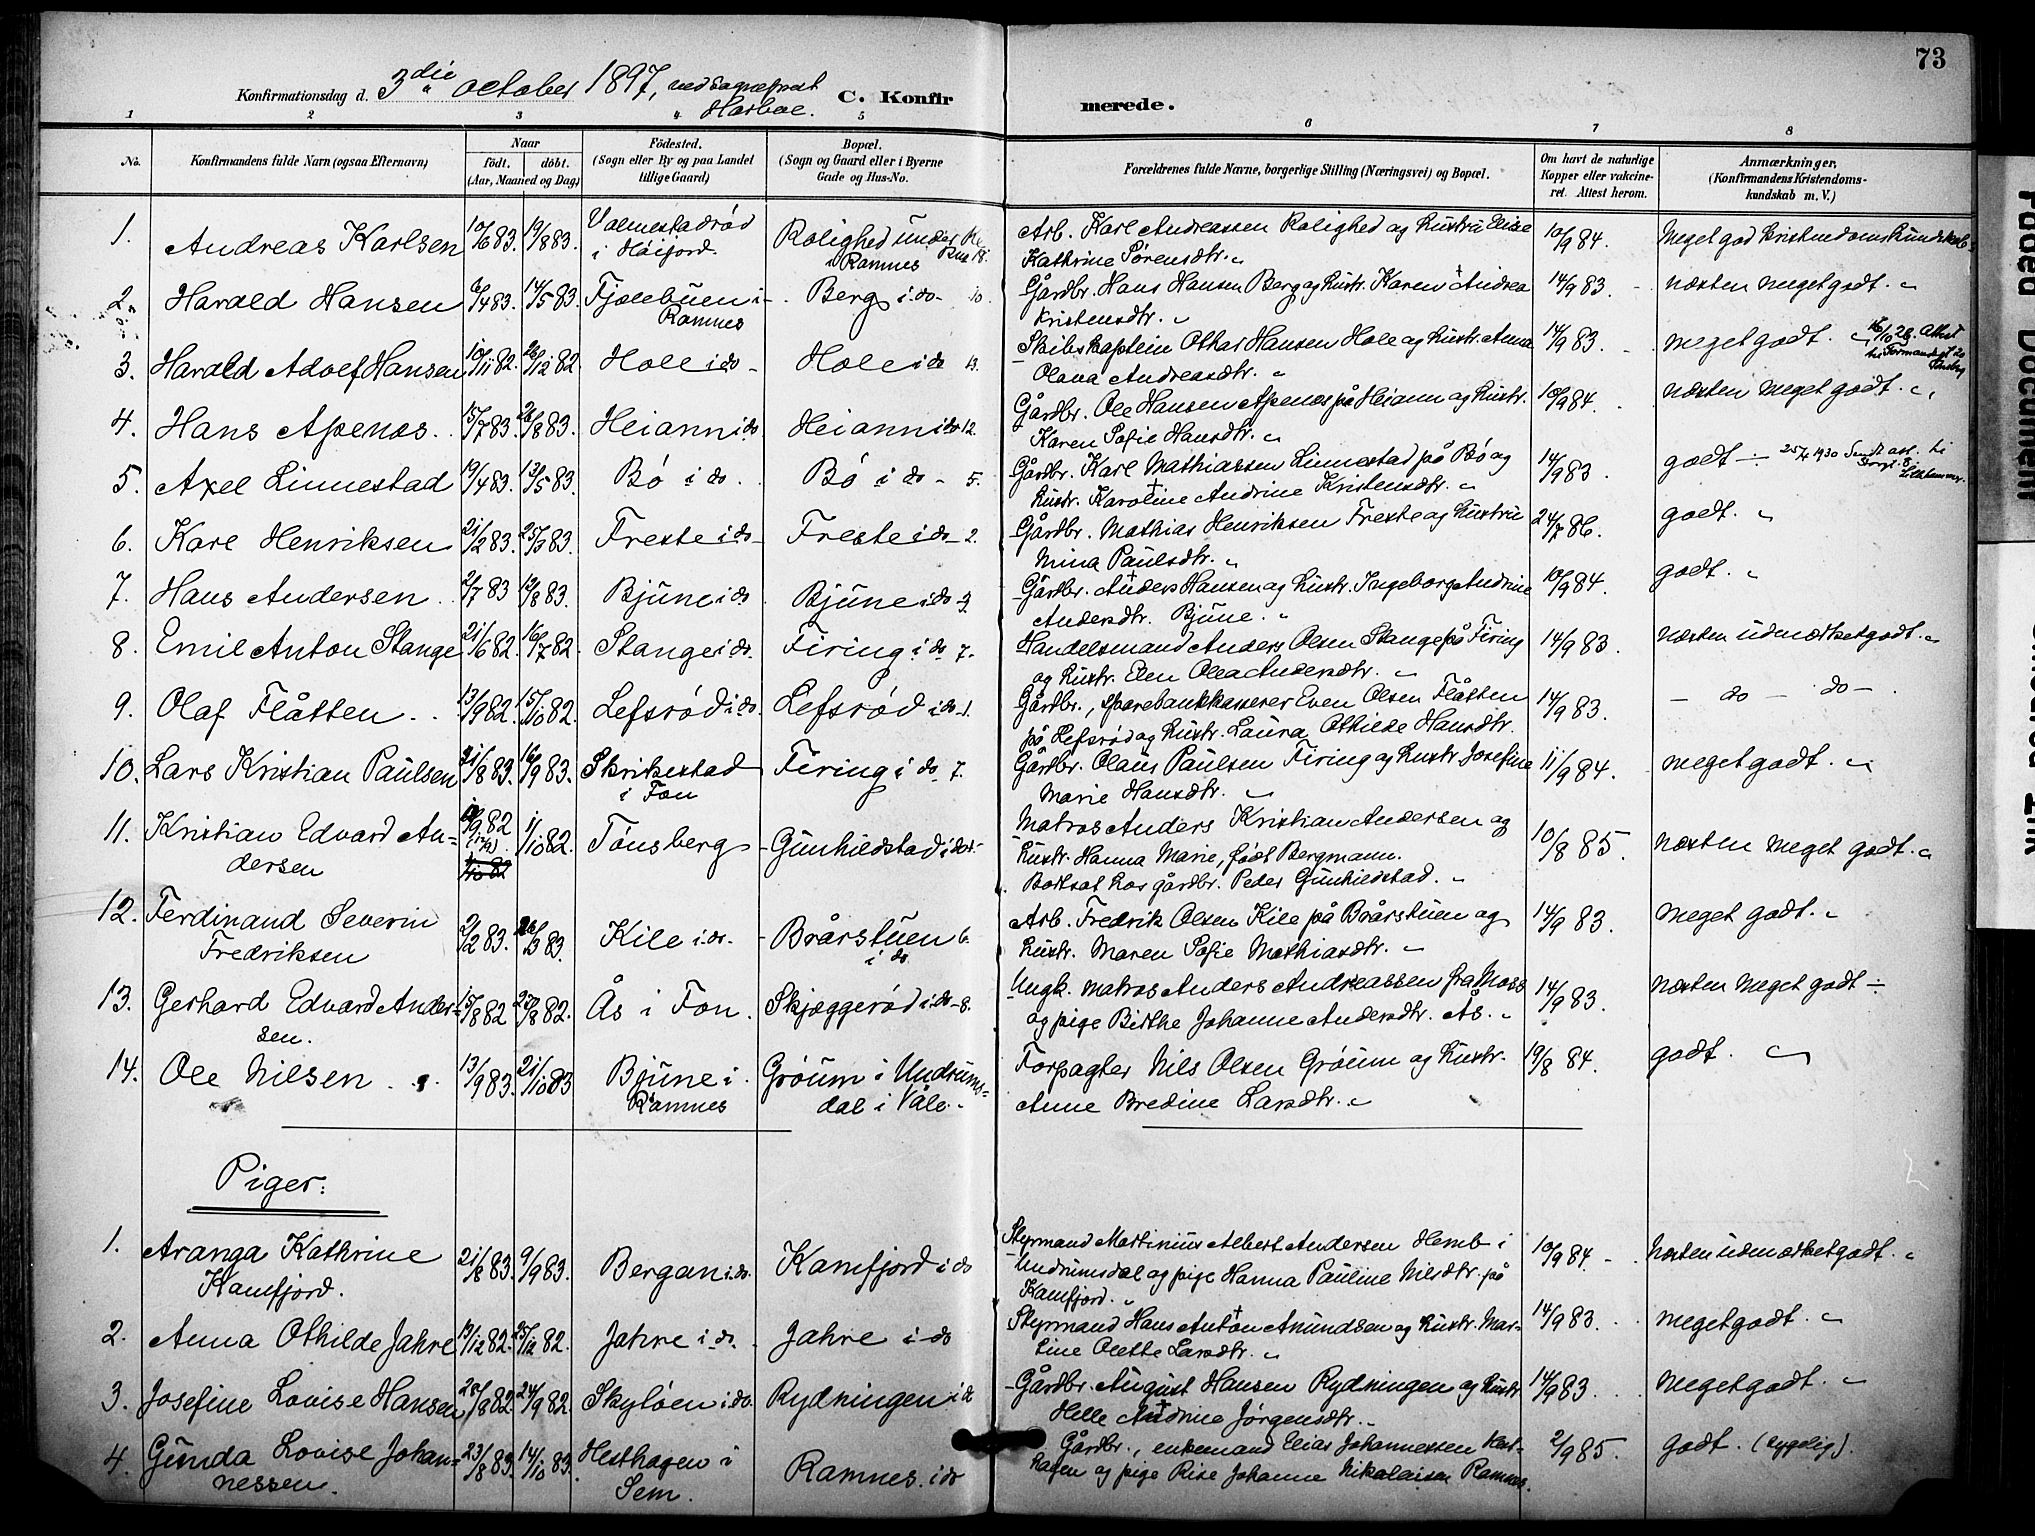 73
Konfirmationsdag d. 3die october 1897, ved Sogneprest Harboe.
C. Konfir merede.
1 2 3 4 5 6 7 8
No.
Konfirmandens fulde Navn (ogsaa Efternavn)
Naar
født. døbt.
(Aar, Maaned og Dag)
Fødested.
(Sogn eller By og paa Landet
tillige Gaard)
Bopæl.
(Sogn og Gaard eller i Byerne
Gade og Hus-No.
Forældrenes fulde Navne, borgerlige Stilling (Næringsvei) og Bopæl.
Om havt de naturlige
Kopper eller vakcine-
ret. Attest herom.
Anmærkninger,
(Konfirmandens Kristendoms-
kundskab m. V.)
1. Andreas Karlsen 10/6 83. 19/8 83. Valmestadrød i Høijord. Rolighed under i Ramnes
Arb. Karl Andreassen Rolighed og hustru Elise
Kathrine Sørensdtr. 10/9 84. Meget god Kristendomskundskab
2. Harald Hansen 6/4 83. 14/5 83. Fjelebuen i Ramnes Berg i do 10.
Gårdbr. Hans Hansen Berg og hustr. Karen Andrea
Kristensdtr. 14/9 83. næsten meget godt.
3. Harald Adolf Hansen 10/11 82. 26/12 82. Hole i do Hole i do 13.
Skibskaptein Othar Hansen Hole og hustr. Anna
Olava Andreasdtr. 14/9 83. meget godt. 16/10 28. Attest
4. Hans Apenæs. 15/7 83. 26/8 83. Heian i do Heian i do 12.
Gårdbr. Ole Hansen Apenes på Heian og hustr.
Karen Sofie Hansdtr. 10/9 84. næsten meget godt.
5. Axel Linnestad 19/4 83. 13/5 83. Bø i do Bø i do 5.
Gårdbr. Karl Mathiassen Linnestad på Bø og
hustr. Karoline Andrine Kristensdtr. 14/9 83 godt 25/4 1930 Sendt att. til Lillehammer.
6. Karl Henriksen 21/2 83. 25/3 83. Freste i do Freste i do 2.
Gårdbr. Mathias Henriksen Freste og hustru
Mina Paulsdtr. 24/7 86. godt.
7. Hans Andersen 2/7 83 12/8 83. Bjune i do Bjune i do
Gårdbr. Anders Hansen og hustr. Ingeborg Andrine
Andersdtr. Bjune. 10/9 84. godt.
8. Emil Anton Stange 21/6 82. 16/7 82. Stange i do. Firing i do 7.
Handelsmand Anders Olsen Stange på Firing
og hustr. Elen Olea Andersdtr. 14/9 83. næsten udmærket godt.
9. Olaf Flåtten 13/9 82. 15/10 82. Lefsrød i do. Lefsrød i do 1.
Gårdbr., sparebankkasserer Even Olsen Flåtten
på Lefsrød og hustr. Laura Othilde Hansdtr. 14/9 83. do do
10. Lars Kristian Paulsen 21/8 83. 16/9 83. Skrikestad i Fon Firing i do 7.
Gårdbr. Olaus Paulsen Firing og hustr. Josefine
Marie Hansdtr. 11/9 84. meget godt.
11. Kristian Edvard An-
dersen 1/10 82. Tønsberg Gunhildstad i do
Matros Anders Kristian Andersen og
hustr. Hanna Marie, født Bergmann.
Bortsat hos gårdbr. Peder Gunhildstad. 10/8 85. næsten meget godt.
12. Ferdinand Severin
Fredriksen 2/2 83. Kile i do. Brårstuen i do 6.
Arb. Fredrik Olsen Kile på Brårstuen og
hustr. Maren Sofie Mathiasdtr. 14/9 83. meget godt.
13. Gerhard Edvard Ander-
sen. 15/8 82 27/8 82. Ås i Fon. Skjeggerød i do 8.
Ungk. matros Anders Andreassen fra Moss
og pige Birthe Johanne Andersdtr. Ås. 14/9 83. næsten meget godt
14. Ole Nilsen 13/9 83. 21/10 83 Bjune i Ramnes Grøum i Undrums-
dal i Våle.
Forpagter Nils Olsen Grøum og hustr.
Anne Bredine Larsdtr. 19/8 84. godt.
Piger:
1. Aranga Kathrine
Kamfjord. 21/8 83. 9/9 83. Bergan i do. Kamfjord i do
Styrmand Martinius Albert Andersen Hemb i
Undrumsdal og pige Hanna Pauline Nilsdtr. på
Kamfjord. 10/9 84. Næsten udmærket godt.
2. Anna Othilde Jahre 13/12 82. 25/12 82. Jahre i do. Jahre i do
Styrmand Hans Anton Amundsen og hustr. Mar-
tine Olette Larsdtr. 14/9 83. meget godt.
3. Josefine Lovise Hansen 28/8 82. 24/9 82. Skyløen i do. Rydningen i do
Gårdbr. August Hansen Rydningen og hustr.
Helle Andrine Jørgensdtr. 14/9 83. meget godt.
4. Gunda Lovise Johan-
nessen. 23/8 83. 14/10 83. Hesthagen i Sem. Ramnes. i do
Gårdbr., enkemand Elias Johannessen Hest-
hagen og pige Rise Johanne Nikolaisen Ramnes. 2/9 85. godt. (sygelig).